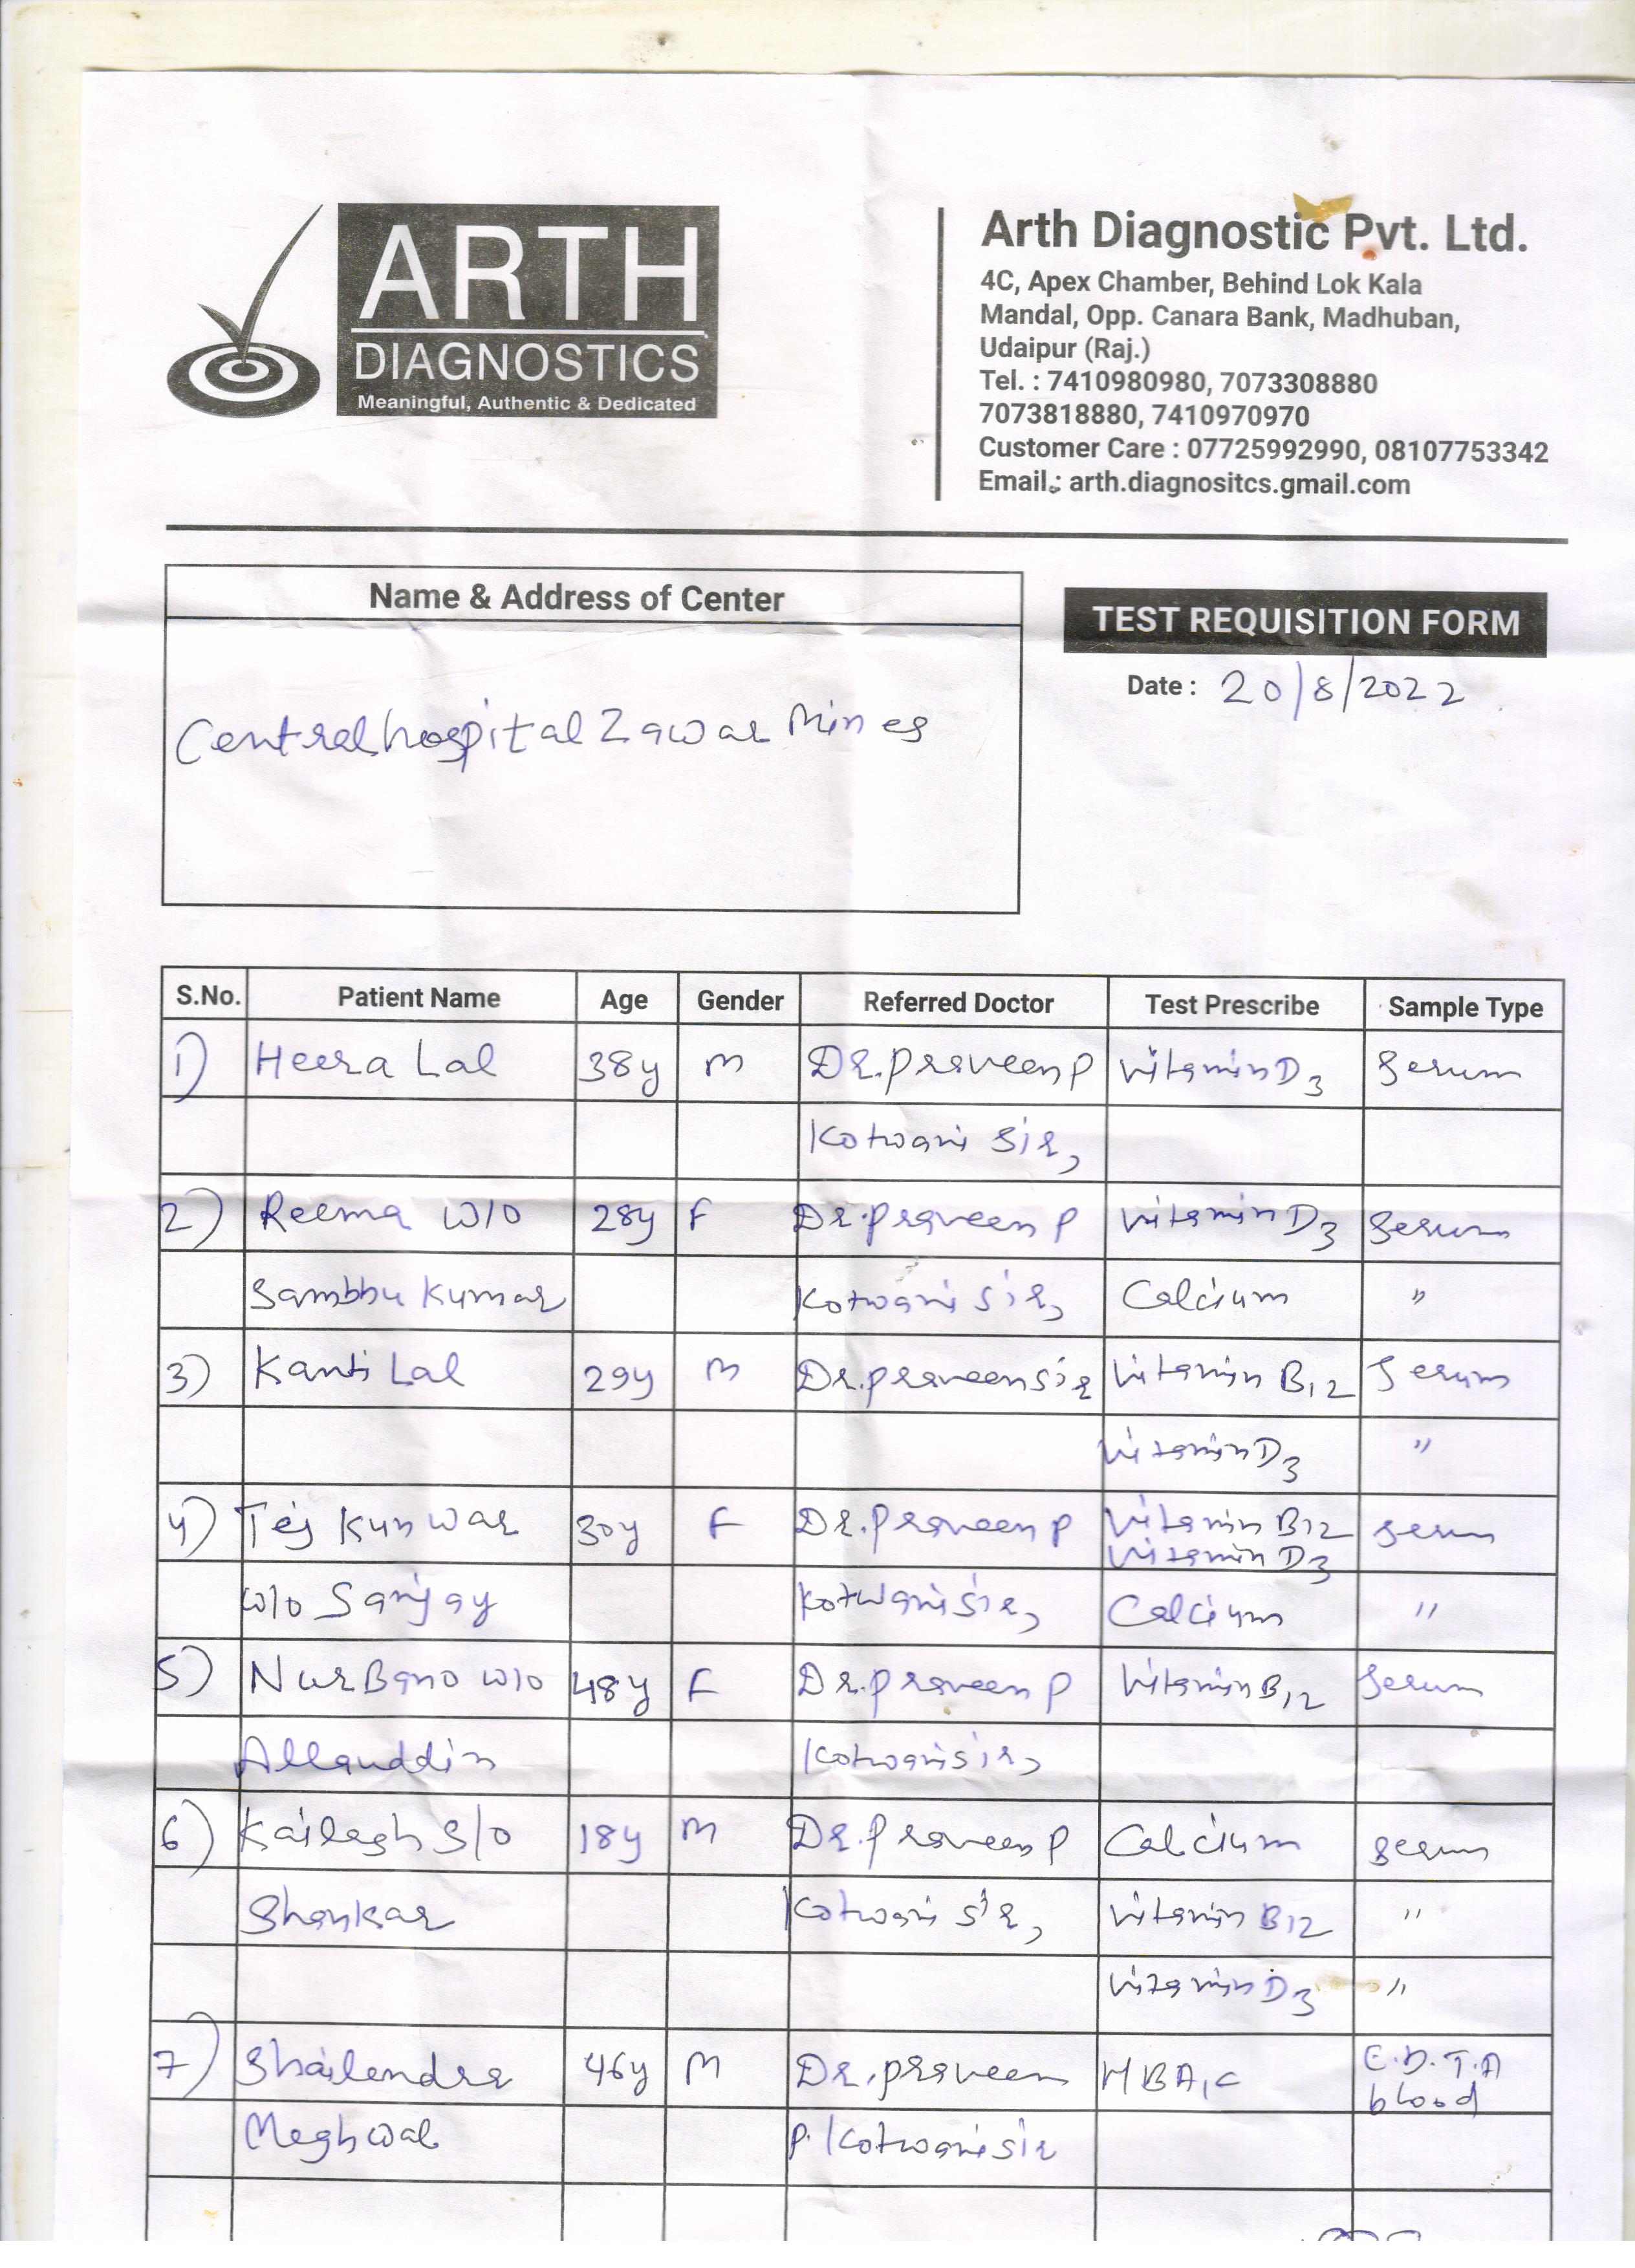 ARTH
DIAGNOSTICS
Meaningful, Authentic & Dedicated
Arth Diagnostic Pvt. Ltd.
4C, Apex Chamber, Behind Lok Kala
Mandal, Opp. Canara Bank, Madhuban,
Udaipur (Raj.)
Tel. : 7410980980, 7073308880
7073818880, 7410970970
Customer Care : 07725992990, 08107753342
Email.: arth.diagnositcs.gmail.com
Name & Address of Center
TEST REQUISITION FORM
Date : 20/8/2022
Central hospital Zawar Mines
S.No. Patient Name Age Gender Referred Doctor Test Prescribe Sample Type
1) Heera Lal 38y M Dr. Praveen P Vitamin D3 Serum
Kotwani Sir,
2) Reema W/O 28y F Dr. Praveen P Vitamin D3 Serum
Sambhu Kumar Kotwani Sir, Calcium "
3) Kanti Lal 29y M Dr. Praveen Sir Vitamin B12 Serum
Vitamin D3 "
4) Tej Kunwar 30y F Dr. Praveen P Vitamin B12 Serum
Vitamin D3
W/O Sanjay Kotwani Sir, Calcium "
5) Nur Bano W/O 48y F Dr. Praveen P Vitamin B12 Serum
Allauddin Kotwani Sir,
6) Kailash S/O 18y M Dr. Praveen P Calcium Serum
Shankar Kotwani Sir, Vitamin B12 "
Vitamin D3 "
7) Shailendra 46y M Dr. Praveen HBA1C E.D.T.A
blood
Meghwal P. Kotwani Sir